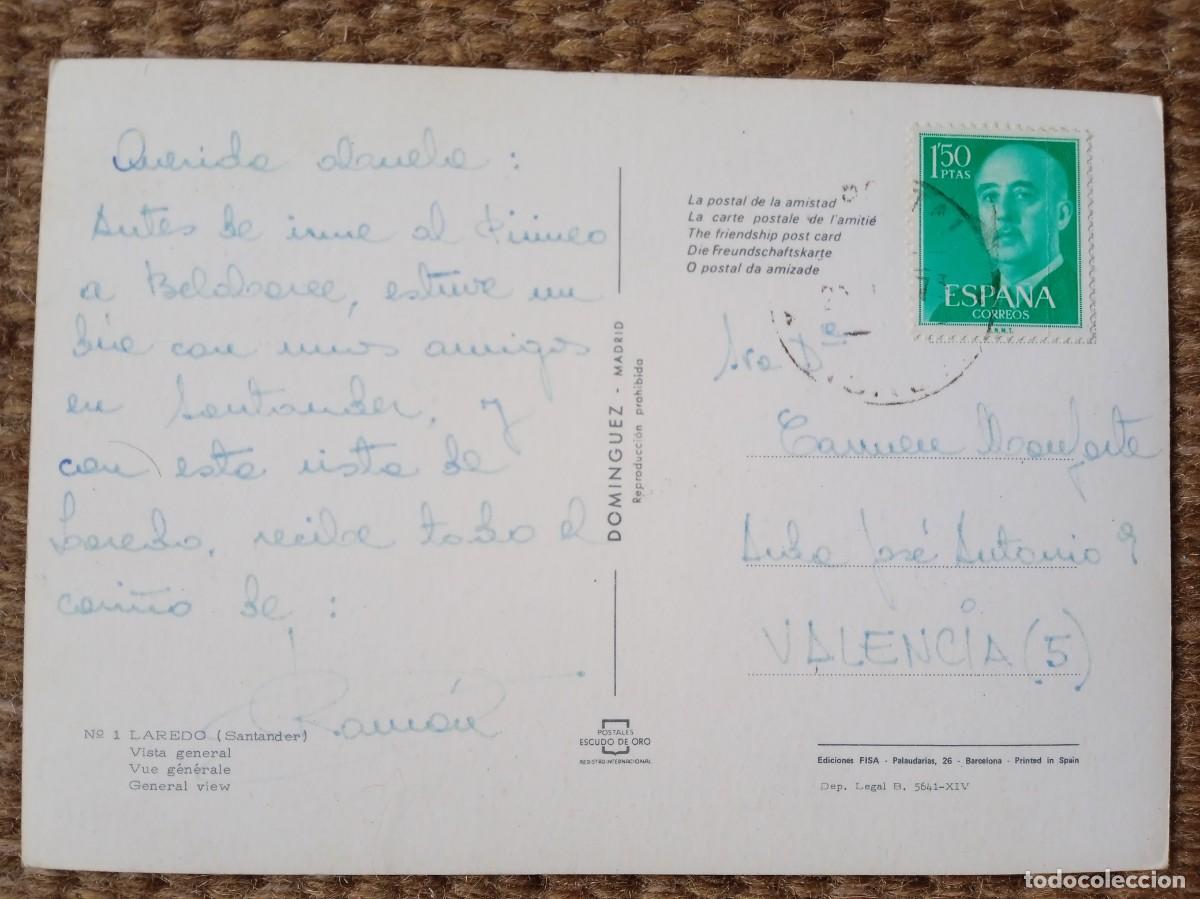 Querida abuela :
Antes de irme al Pirineo
a Beldraree, estuve un
día con unos amigos
en Santander, y
con esta vista de
Laredo, recibe todo el
cariño de :
Ramón
Nº 1 LAREDO (Santander)
Vista general
Vue générale
General view
DOMINGUEZ - MADRID
Reproducción prohibida
POSTALES
ESCUDO DE ORO
REGISTRO INTERNACIONAL
La postal de la amistad
La carte postale de l'amitié
The friendship post card
Die Freundschaftskarte
O postal da amizade
1'50
PTAS
ESPAÑA
CORREOS
F.N.M.T.
Sra Dª
Carmen Monforte
Avda José Antonio 9
VALENCIA (5)
Ediciones FISA - Palaudarias, 26 - Barcelona - Printed in Spain
Dep. Legal B. 5641-XIV
todocoleccion